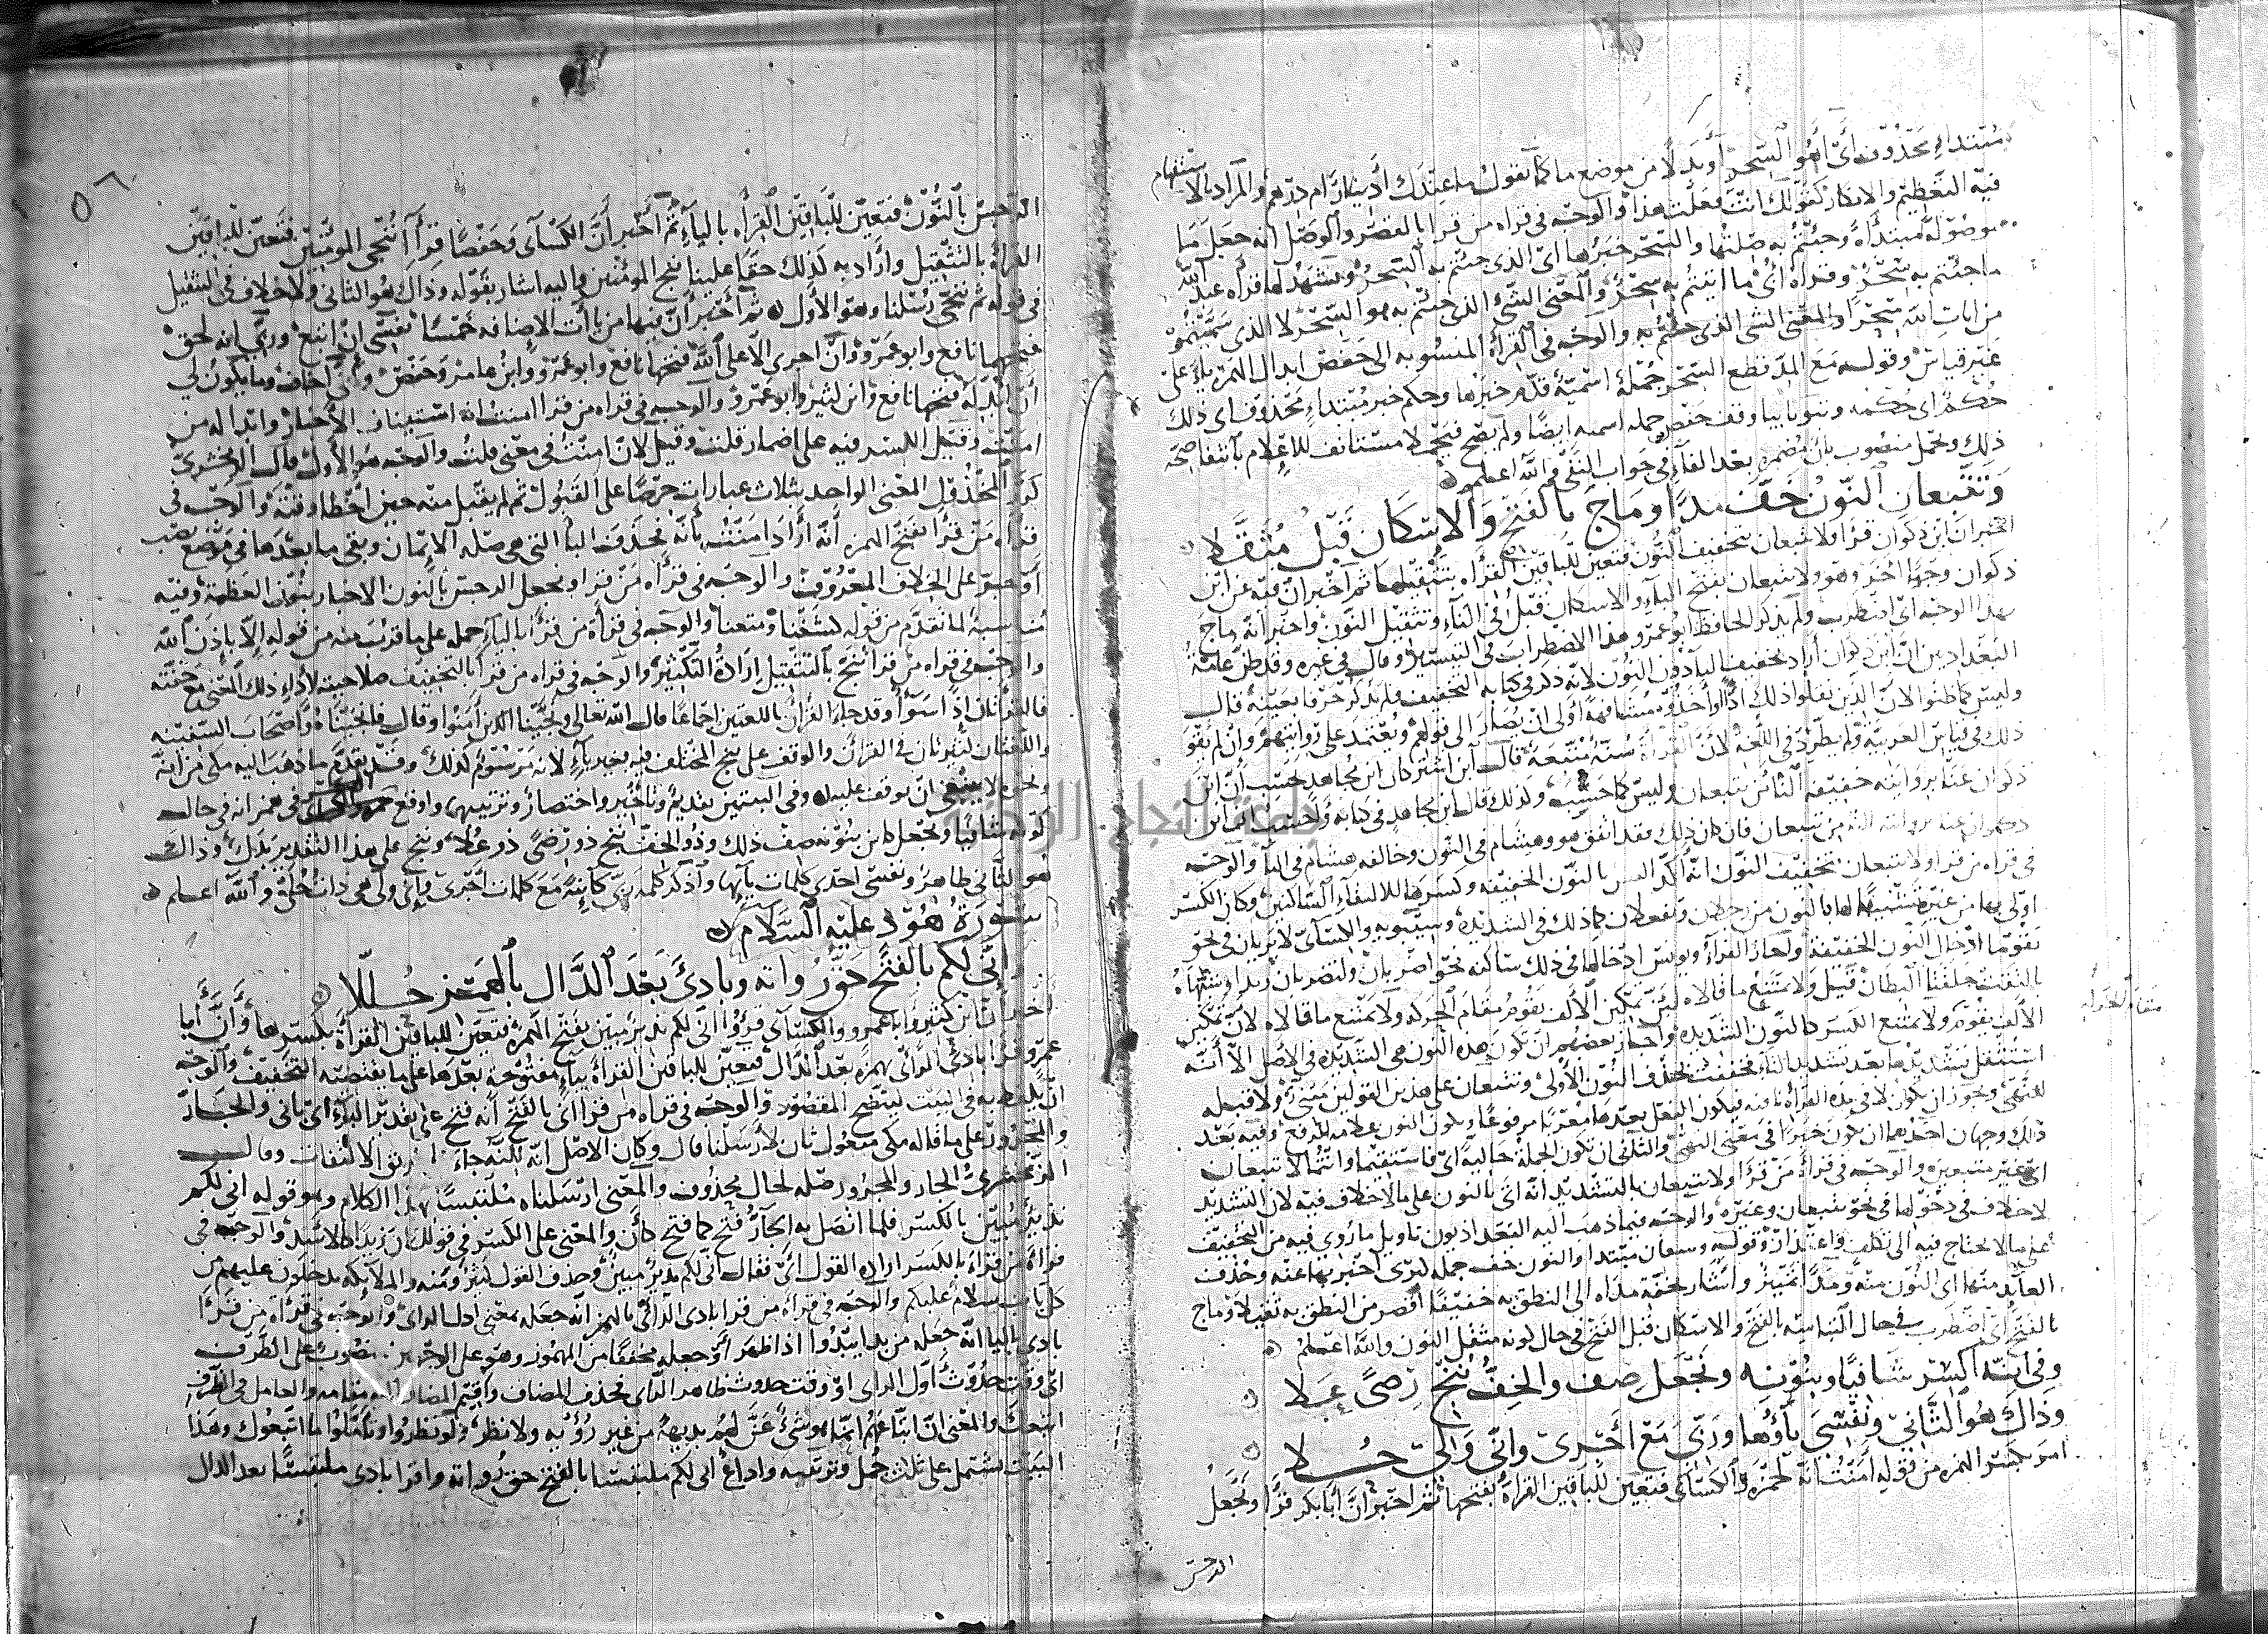 مبتداء محذوف أي أهو السحر أو بدلا من موضع ما كما تقول ما عندك أدينار أم درهم والمراد بالا
ستفهام
فيه التعظيم والانكار كقولك أنت فعلت هذا والوجه في قراه من قرا بالقصر والوصل انه جعل ما
موصوله مبتدأه وجئتم به صلتها والسحر خبرها اى الذى جئتم به السحر وتشهد لها قراه عبد الله
ما جئتم به سحر وقراه أبي ما اتيتم به سحر والمعنى الشئ الذى جئتم به هو السحر لا الذى سميتموه
من ايات الله سحرا والمعنى الشى الذى جئتم به والوجه في القراه المنسوبه الى حفص ابدال الهمزه ياء على
غير قياس وقوله مع المد قطع السحر جملة اسمية قدم خبرها وحكم خبر مبتداء محذوف اى ذلك
حكم اى حكمه وتبويا بيا وقف حفص جمله اسميه ايضا ولم يصح فيحملا مستانف للاعلام بانتفا صحه
ذلك وتحمل منصوب بأن مضمره بعد الفاء في جواب النفي والله اعلم
وتتبعان النون خف مدا وماج بالفتح والاسكان قبل مثقلا
اخبر ان ابن ذكوان قرا ولا تتبعان بتخفيف النون فتعين للباقين القراه بتثقيلها ثم اخبر ان فيه عن ابن
ذكوان وجها اخر وهو ولا تتبعان بفتح الباء والاسكان قبل في التاء وتثقيل النون واخبر انه ماج
بهذا الوجه اى اضطرب ولم يذكر الحافظ ابو عمرو هذا الاضطراب في التيسير وقال في غيره وقد ظن عامة
البغداديين ان ابن ذكوان أراد تخفيف التا دون النون لانه ذكر في كتابه التخفيف ولم يذكر حرفا بعينه قال
وليس كما ظنوا لان الذين نقلوا ذلك اداوا اخذوه مشافهة أولى ان يصار الى قولهم ويعتمد على روايتهم وان لم يقو
ذلك في قياس العربيه ولم يطرد في اللغه لان القراة سنة متبعة قال ابن اشته كان ابن مجاهد يحسب أن ابن
ذكوان عنا بروايته خفيفه التا من تتبعان وليس كما حسب ولذلك قال ابن مجاهد في كتابه واحسب ان ابن
ذكوان عنى بروايته التا من تتبعان فان كان ذلك فقد اتفق هو وهشام في النون وخالفه هشام في التا والوجه
في قراه من قرا ولا تتبعان بتخفيف النون انه أكد بالنون الخفيفه وكسرها لالتقاء الساكنين وكان الكسر
اولى بها من غيره تشبيها لها بالنون من رجلان وتفعلان كما ذلك في الشديده وسيبويه والكسائي لا يريان في نحو
تقوما ادخال النون الخفيفة واجاز الفراء ويونس ادخالها في ذلك ساكنه نحو اضربان ولتضربان زيدا
الالف تقوم ولا يمتنع الكسر كالنون الشديده واجاز بعضهم ان تكون هذه النون هي الشديده في الاصل الا أنه
استثقل تشديدها بعد تشديد التاء فخففت بحذف النون الأولى وتتبعان على هذين القولين مبني ولا قبله
للنهي ويجوز ان يكون لا في هذه القراة نافيه فيكون الفعل بعدها معربا مرفوعا وتكون النون علامه للرفع وفيه بعد
ذلك وجهان احدهما ان يكون خبرا في معنى النهي والثاني ان تكون الجملة حالية اى فاستقيما وانتما لا تتبعان
اى غير متبعين والوجه في قراة من قرا ولا تتبعان بالتشديد انه اتى بالنون على ما لا خلاف فيه لان التشديد
لا خلاف في دخولها في نحو تتبعان وغيره والوجه فيما ذهب اليه البغداديون تاويل ما روي فيه من التخفيف
على ما لا يحتاج فيه الى تكلف واعتذار وقوله وتتبعان مبتدا والنون خف جمله كبرى اخبر بها عنه وحذف
العائد منها اى النون منه ومدا تمييز واشار بخفة مداه الى النطق به خفيفا أقصر من النطق به ثقيلا وماج
بالفتح اى اضطرب في حال التباسه بالفتح والاسكان قبل الفتح في حال كونه مثقل النون والله اعلم
وفي انه اكسر شافيا وبنونه ونجعل صف والخف ننج رضى علا
وذاك هو الثاني ونفسي ياؤها وربي مع اجري واني ولي حلا
امر بكسر الهمزه من قوله امنت انه لحمزه والكسائي فتعين للباقين القراة بفتحها ثم اخبر ان أبا بكر قرا ونجعل
الرجس
مقام الحركه
٥٦
الرجس بالنون فتعين للباقين القراه بالياء ثم اخبر أن الكسآى وحفصا قرآ ننجي المومنين فتعين للباقين
القراة بالتثقيل وأراد به كذلك حقا علينا ننج المومنين واليه اشار بقوله وذاك هو الثاني ولا خلاف في التثقيل
في قوله ثم ننجي رسلنا وهو الأول ثم أخبر أن فيها من يآت الاضافه خمسا نفسي ان اتبع وربي انه لحق
فتحهما نافع وابو عمرو وان اجرى الا على الله فتحها نافع وابو عمرو وابن عامر وحفص واني اخاف وما يكون لي
أن ابدله فتحها نافع وابن كثير وابو عمرو والوجه في قراه من قرا امنت انه استيناف الاخبار وابداله من
امنت وقيل الكسر فيه على اضمار قلت وقيل لان امنت في معنى قلت والوجه هو الأول قال الزمخشري
كرر المخذول المعنى الواحد بثلاث عبارات حرصا على القبول ثم لم يقبل منه حين أخطا وقته والوجه في
قراه من قرا بفتح الهمزه أنه أراد امنت بأنه فحذف البا التي هي صله الايمان وبقي ما بعدها في موضع نصب
أو جر على الخلاف المعروف والوجه في قراه من قرا ونجعل الرجس بالنون الاخبار بنون العظمة وفيه
مناسبة لما تقدم من قوله كشفنا ومتعنا والوجه في قراة من قرأ بالياء حمله على ما قرب منه من قوله إلا باذن الله
والوجه في قراه من قرا ننج بالتثقيل ارادة التكثير والوجه في قراه من قرا بالتخفيف صلاحيته لأداء ذلك المعنى مع خفته
فالقراتان اذا سوآ وقد جاء القران باللغتين اجماعا قال الله تعالى ونجينا الذين امنوا وقال فانجيناه واصحاب السفينه
واللغتان كثيرتان في القران والوقف على ننج المختلف فيه بغير ياء لانه مرسوم كذلك وقد تقدم ما ذهب اليه مكي من انه
ونحوه لا ينبغي ان يوقف عليه وفي البيتين تقديم وتاخير واختصار وترتيبهما واوقع الكسر في همز انه في حال
كونه شافيا ونجعل كاين بنونه صف ذلك وذو الخف ننج ذو رضى ذو علا وننج على هذا التقدير بدل وذاك
هو الثاني ظاهر ونفسي احدى كلمات يآيها واذكر كلمه ربي كاينة مع كلمات اجري واني ولي هي ذات حلى والله اعلم
سورة هود عليه السلام
واني لكم بالفتح حق رواته وبادئ بعد الدال بالهمز حللا
أخبر أن ابن كثير وابا عمرو والكسآى قرؤا انى لكم نذير مبين بفتح الهمزه فتعين للباقين القراة بكسرها وأن أبا
عمرو قرا بادئ الرأى بهمزه بعد الدال فتعين للباقين القراة بياء مفتوحة بعدها على ما يقتضيه التخفيف والوجه
ان يلفظ به في البيت ليتضح المقصود والوجه في قراه من قرا انى بالفتح أنه فتح على تقدير الباء اى بانى والجار
والمجرور على ما قاله مكى مفعول ثان لارسلنا قال وكان الاصل انه لكنه جاء على طريق الالتفات وقال
الزمخشري الجار والمجرور صله لحال محذوف والمعنى ارسلناه ملتبسا بهذا الكلام وهو قوله انى لكم
نذير مبين بالكسر فلما اتصل به الجار فتح كما فتح كأن والمعنى على الكسر في قولك ان زيدا كالاسد والوجه في
قراة من قراه بالكسر اراده القول اى فقال انى لكم نذير مبين وحذف القول كثير ومنه والملائكه يدخلون عليهم من
كل باب سلام عليكم والوجه في قراة من قرا بادى الراى بالهمز انه جعله بمعنى اول الراى والوجه في قراة من قرا
بادى باليا انه جعله من بدا يبدوا اذا ظهر أو جعله مخففا من المهموز وهو على الوجهين منصوب على الظرف
اى وقت حدوث أول الراى او وقت حدوث ظاهر الراى فحذف المضاف واقيم المضاف اليه مقامه والعامل في الظرف
اتبعك والمعنى ان اتباعهم انما هو شئ عن لهم بديهة من غير رؤيه ولا نظر ولو نظروا وتاملوا ما اتبعوك وهذا
البيت يشتمل على ثلث جمل وترتيبه واداغ انى لكم ملتبسا بالفتح حق رواته واقرا بادى ملتبسا بعد الدال